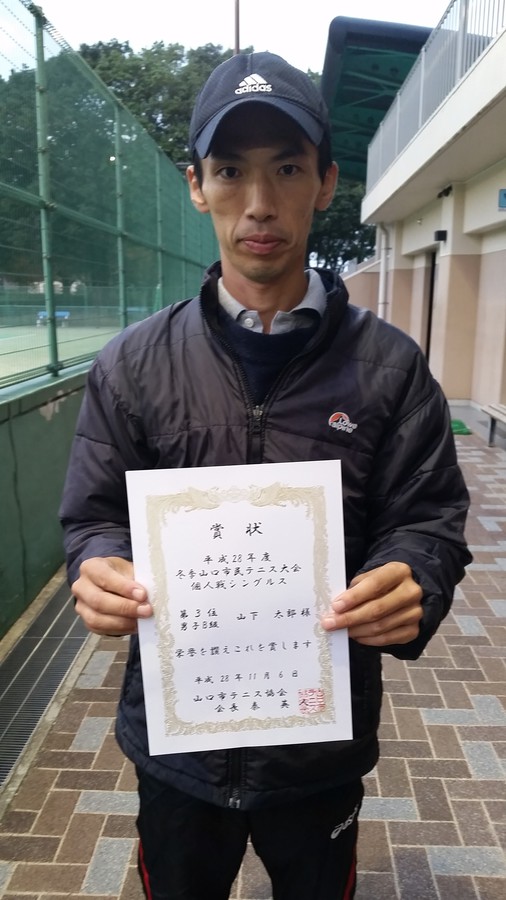 adidas
Lowe
alpine
賞状
平成28年度
冬季山口市民テニス大会
個人戦シングルス
第3位
男子B級
山下 太郎様
栄誉を讃えこれを賞します
平成28年11月6日
山口市テニス協会
会長 泰 英
asics